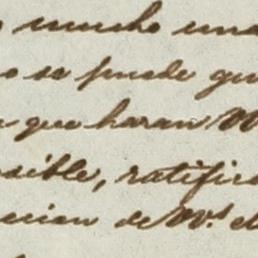 mucho una
o se puede que
que haran V
sible, ratific
acion de Vs. el